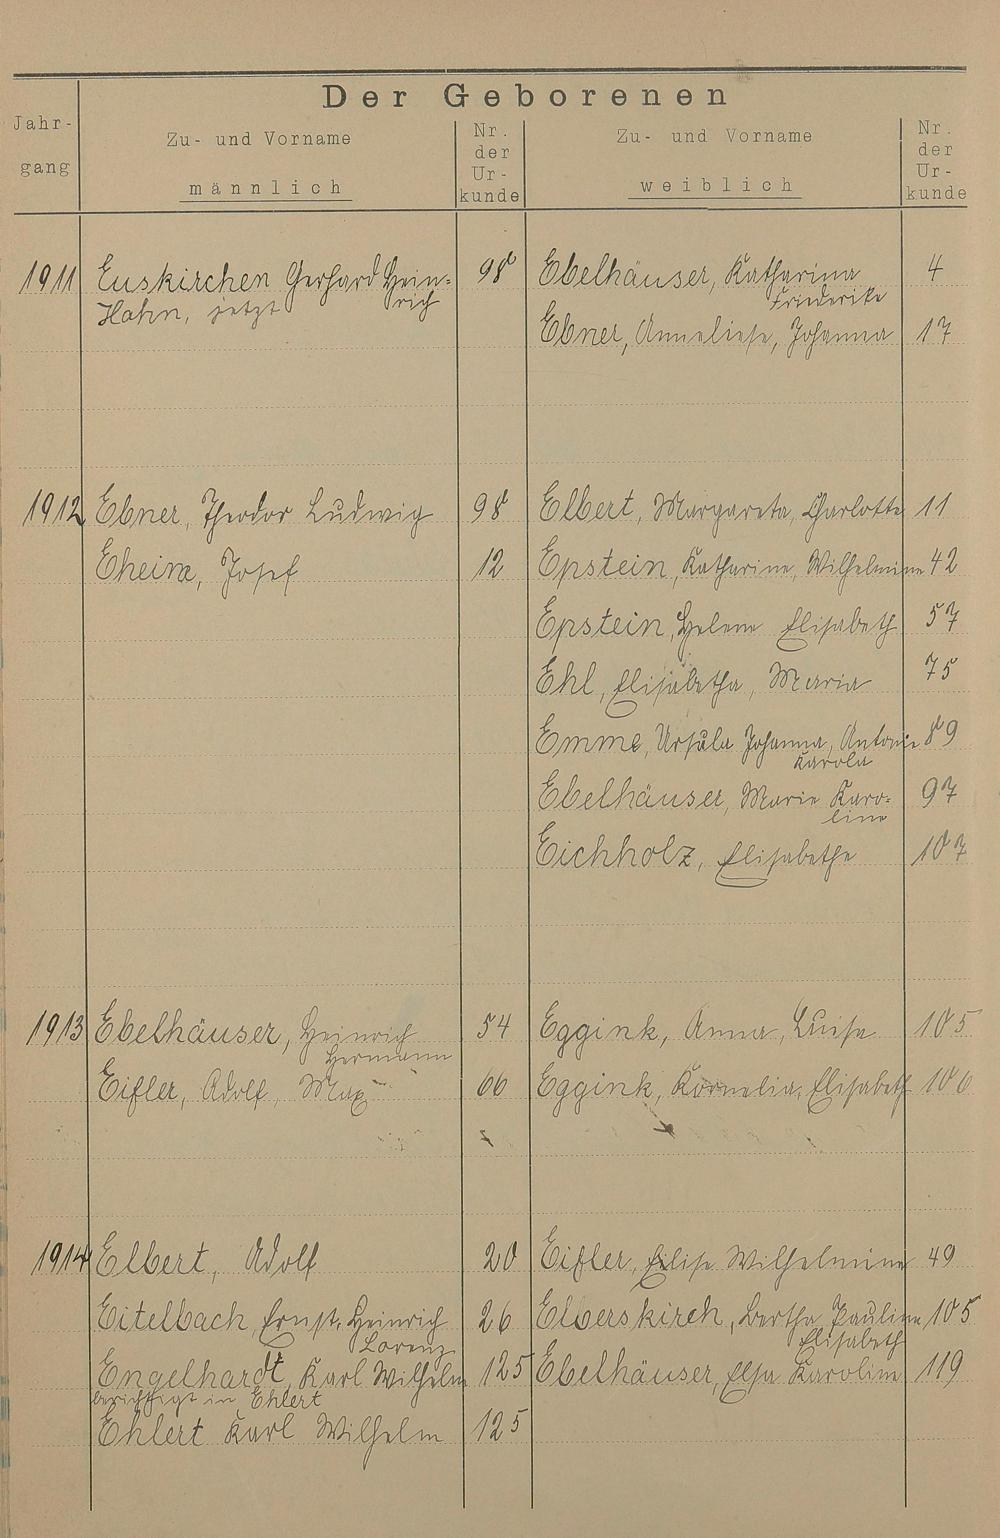 Der Geborenen
Jahr-
gang
Zu- und Vorname
männlich
Nr.
der
Ur-
kunde
Zu- und Vorname
weiblich
Nr.
der
Ur-
kunde
1911 Euskirchen Gerhard Hein- 98 Ebelhäuser, Katharina 4
Hahn, jetzt rich Friederike
Ebner, Anneliese, Johanna 17
1912 Ebner, Theodor Ludwig 98 Elbert, Margareta, Charlotte 11
Eheim, Josef 12 Epstein, Katharine, Wilhelmine 42
Epstein, Helene Elisabeth 57
Ehl, Elisabetha, Maria 75
Emme, Ursula Johanna, Antonie 89
Karola
Ebelhäuser, Marie Karo- 97
line
Eichholz, Elisabethe 107
1913 Ebelhäuser, Heinrich 54 Eggink, Anna, Luise 105
Hermann
Eifler, Adolf, Max 66 Eggink, Kornelia, Elisabeth 106
1914 Elbert, Adolf 20 Eifler, Elise Wilhelmine 49
Eitelbach, Ernst, Heinrich 26 Elberskirch, Bertha Pauline 105
Lorenz Elisabeth
Engelhardt, Karl Wilhelm 125 Ebelhäuser, Elsa Karoline 119
berichtigt in Ehlert
Ehlert Karl Wilhelm 125